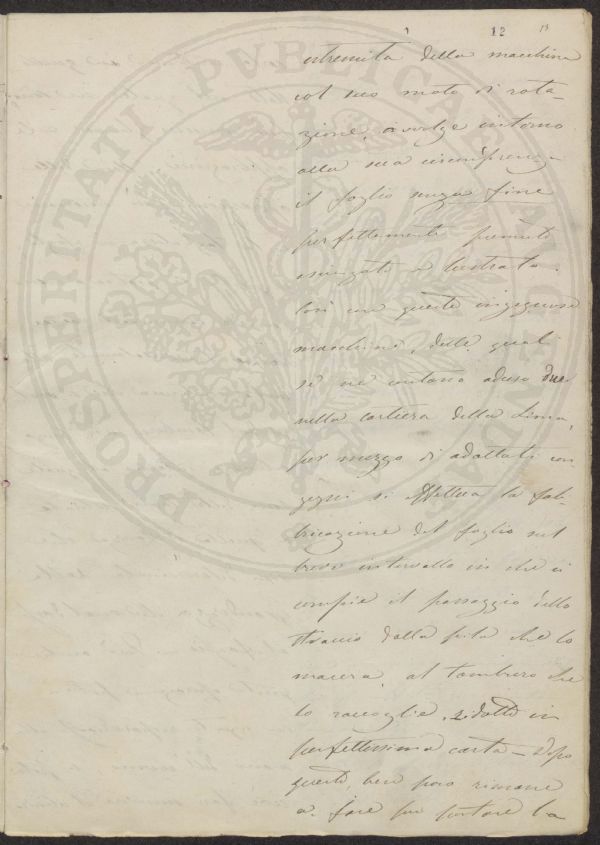 12 13
estremità della macchina
col suo moto di rota-
zione, avvolge intorno
alla sua circonferenza
il foglio senza fine
perfettamente
asciugato e lustrato.
Così con queste ingegnose
macchine, delle quali
se ne contano adesso due
nella cartiera della Lima,
per mezzo di adattati con-
gegni si effettua la fab-
bricazione del foglio nel
breve intervallo in che si
compie il passaggio dello
straccio dalla pila che lo
macera, al tamburo che
lo raccoglie, ridotto in
perfettissima carta – Dopo
questo, ben poco rimane
a fare per portare la
PROSPERITATI PUBLICAE AUGENDAE